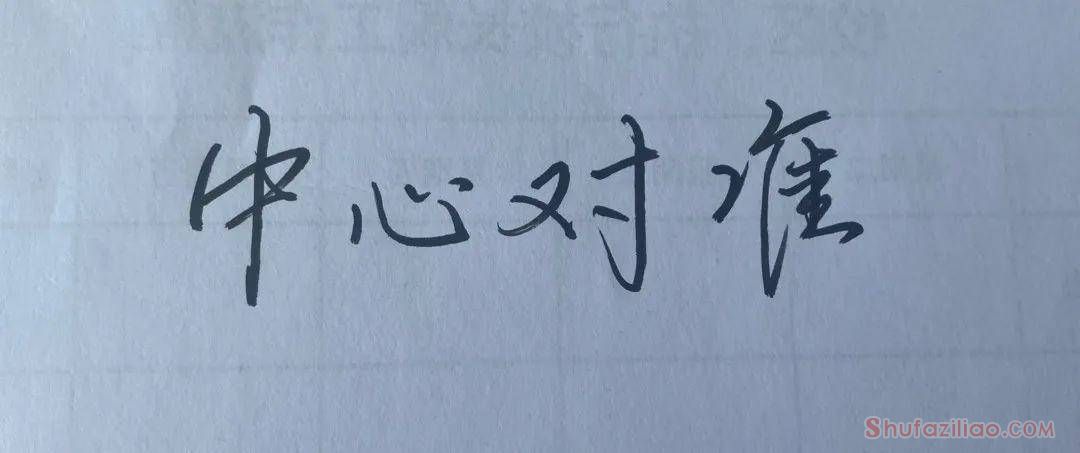 中心对准
Shufaziliao.com